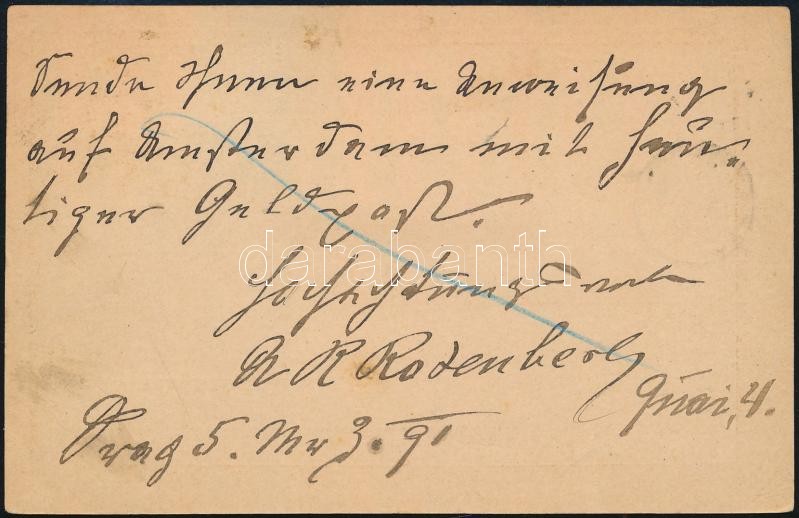 Sende Ihnen eine Anweisung
auf Amsterdam mit heu-
tiger Geldpost.
darabanth
Hochachtungsvoll
A R Rodenberg
Quai, 4.
Prag 5. 91